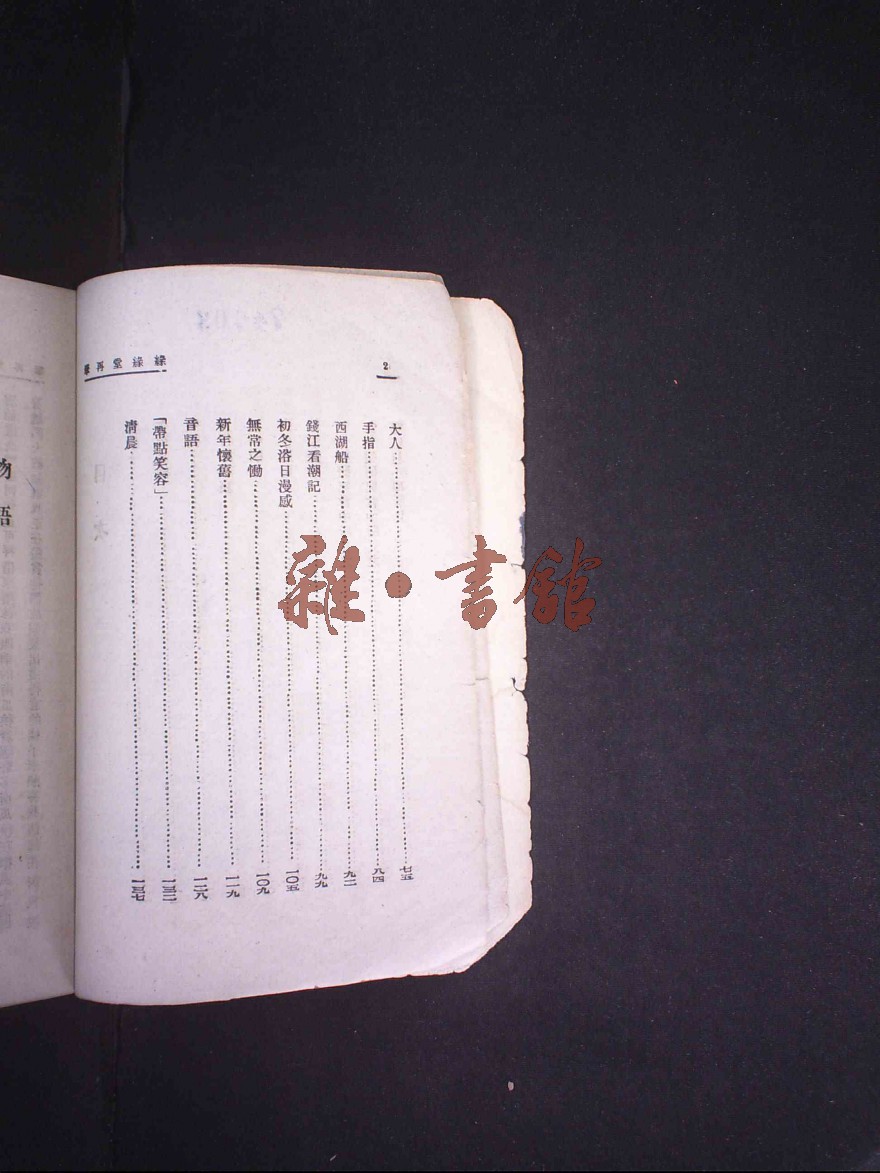 緣緣堂再筆
2
大人……七五
手指……八四
西湖船……九二
錢江看潮記……九九
初冬浴日漫感……一〇五
無常之慟……一〇九
新年懷舊……一一九
音語……一二八
「帶點笑容」……一三二
清晨……一三七
物語
雜·書館